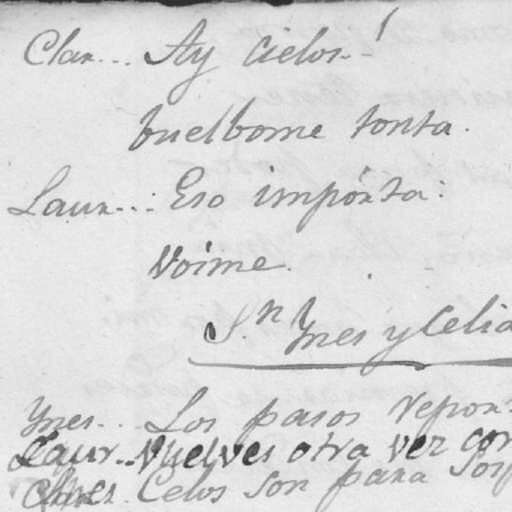 Clar... Ay cielos!
buelbome tonta.
Laur... Eso impórta:
Voime.
S.n Ynes y Celia
Ynes... Los pasos
Laur.. Vuelves otra vez
Celos son para